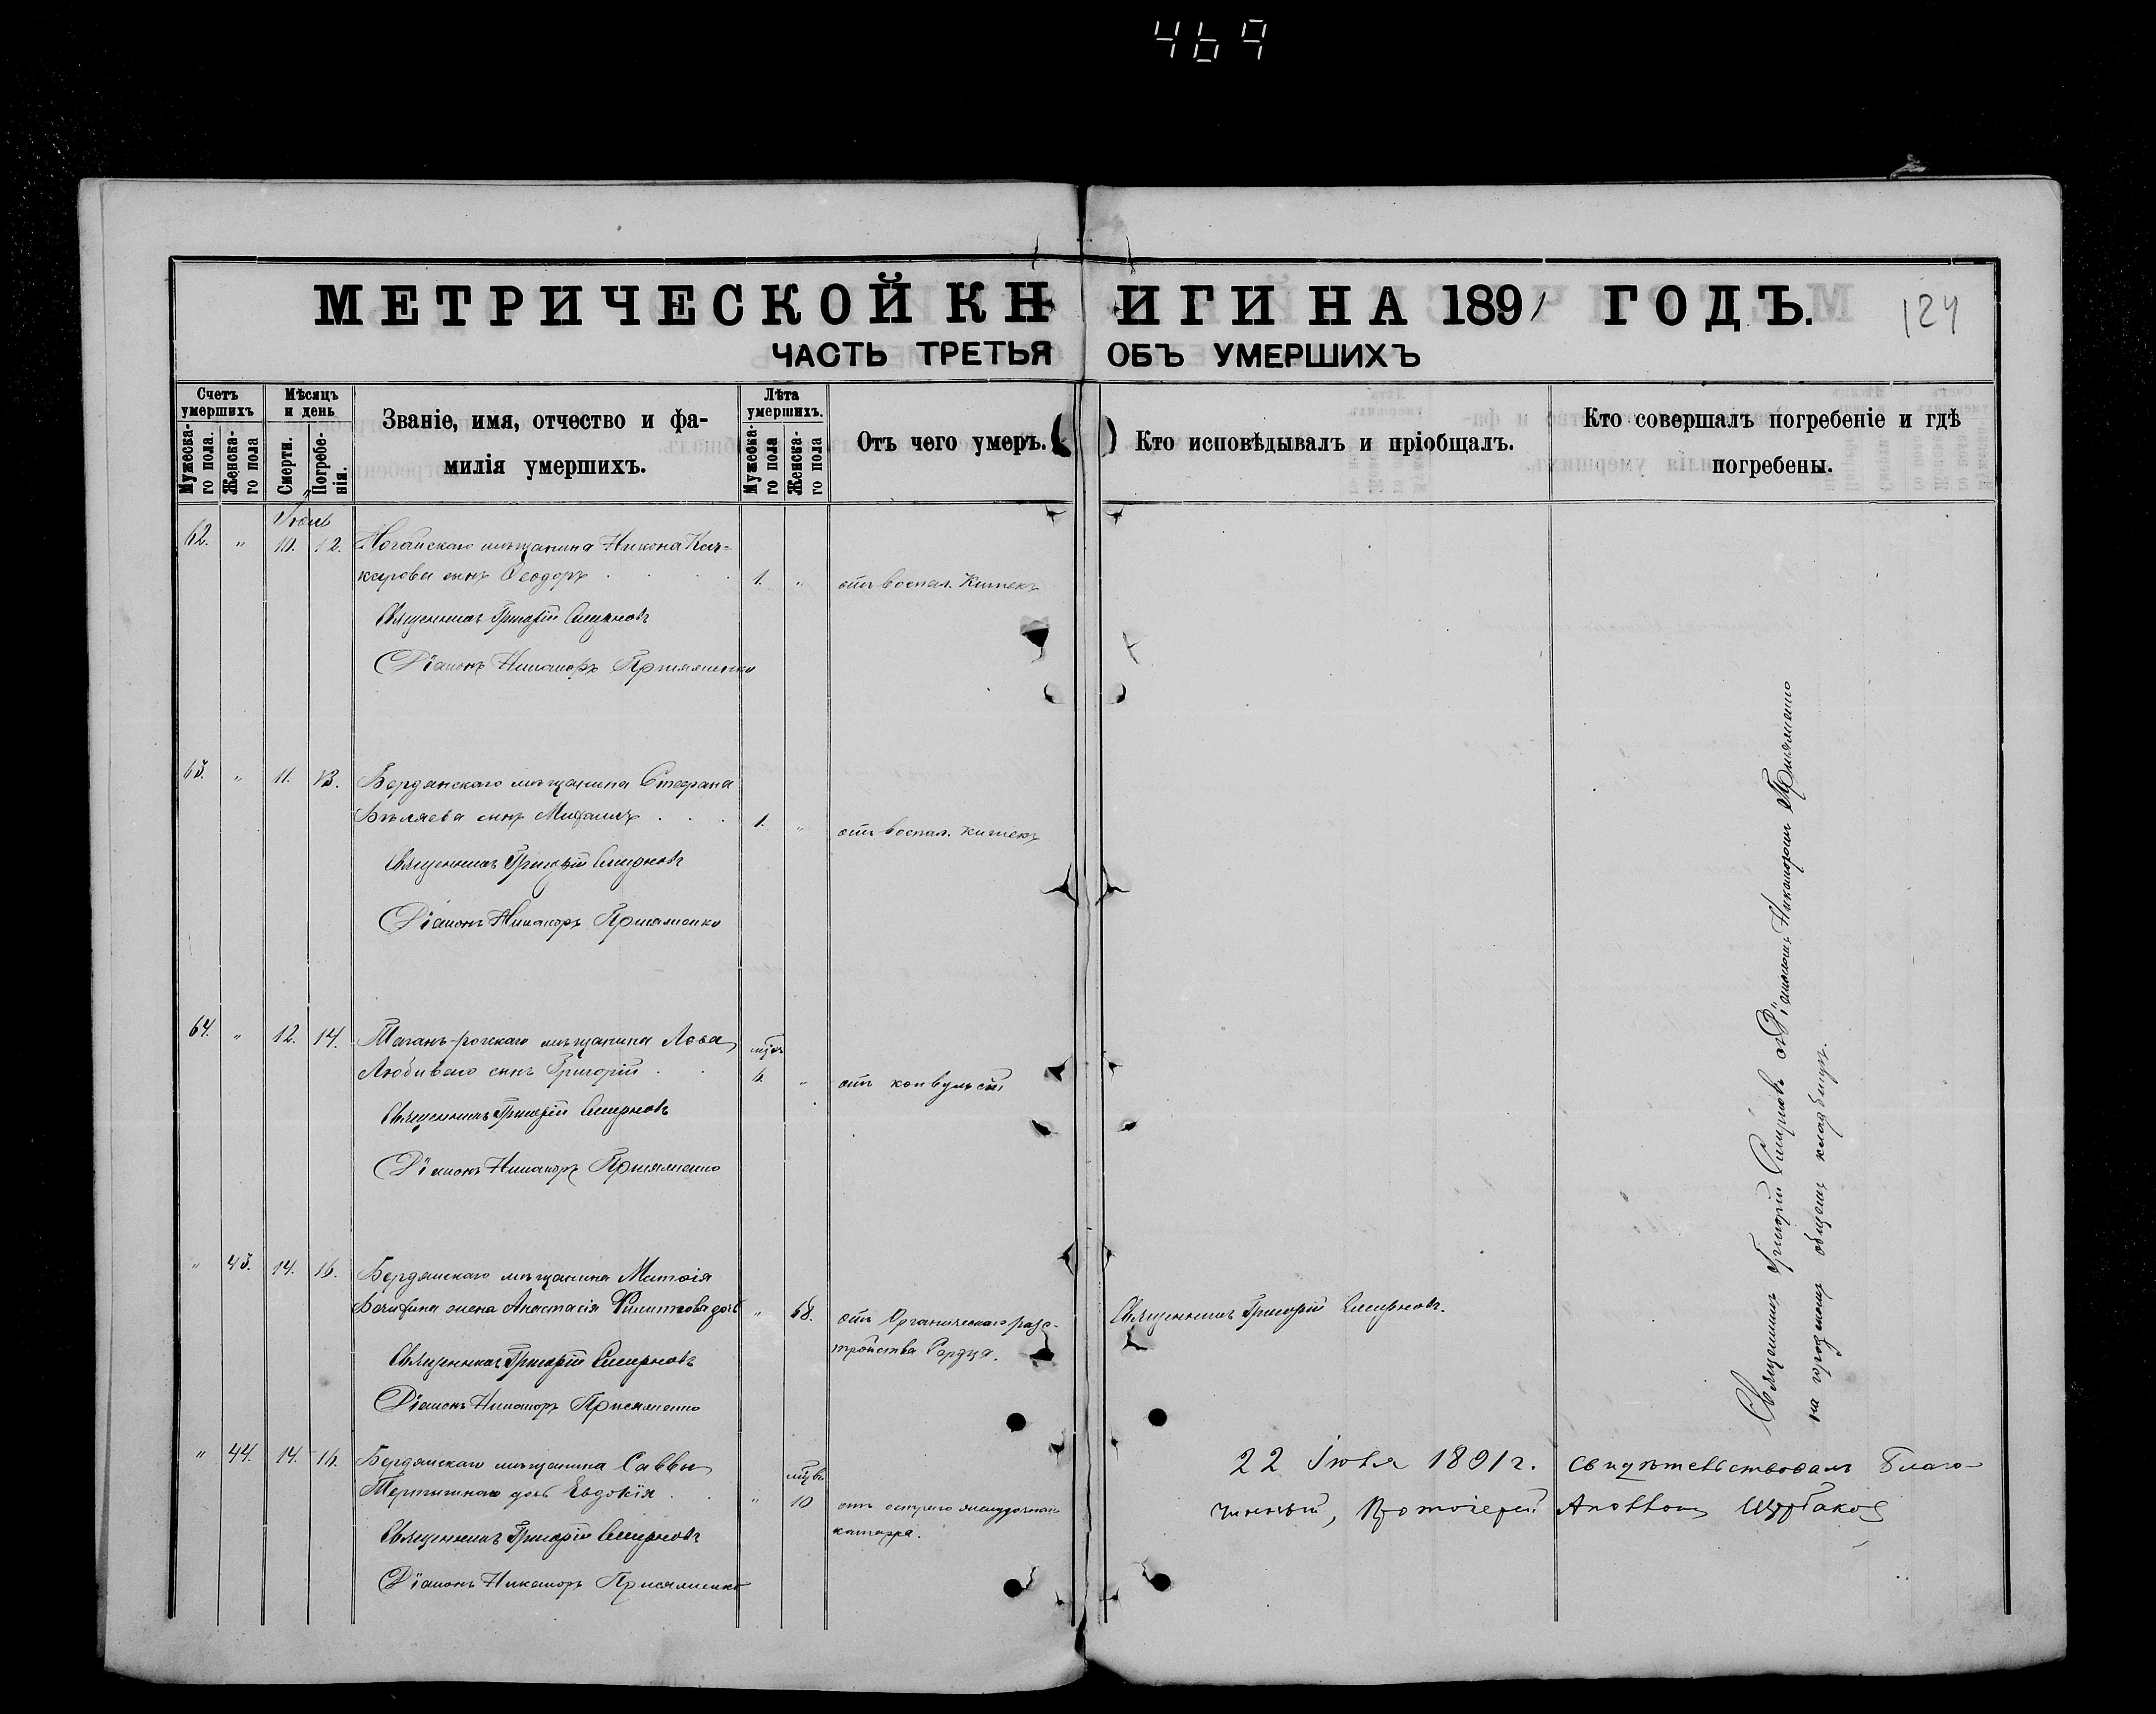 469
МЕТРИЧЕСКОЙ КНИГИ НА 1891 ГОДЪ.
124
ЧАСТЬ ТРЕТЬЯ ОБЪ УМЕРШИХЪ
Счетъ умершихъ
Мужеска-го пола.
Женска-го пола
Мѣсяцъ и день
Смерти.
Погребе-нія.
Званіе, имя, отчество и фа-
милія умершихъ.
Лѣта умершихъ.
Мужеска-го пола
Женска-го пола
Отъ чего умеръ.
Кто исповѣдывалъ и пріобщалъ.
Кто совершалъ погребеніе и гдѣ
погребены.
Іюль
62. " 10. 12. Ногайскаго мѣщанина Никона
сынъ Ѳеодоръ 1. " отъ воспал. Кишекъ
Священникъ Григорій Смирновъ
Діаконъ Никаноръ Присяженко
63. " 11. 13. Бердянскаго мѣщанина Стефана
Бѣляева сынъ Михаилъ 1. " отъ воспал. кишекъ
Священникъ Григорій Смирновъ
Діаконъ Никаноръ Присяженко
64. " 12. 14. Таганъ-рогскаго мѣщанина Льва
сынъ Григорій 6. " отъ конвульсій
Священникъ Григорій Смирновъ
Діаконъ Никаноръ Присяженко
" 43. 14. 16. Бердянскаго мѣщанина
жена Анастасія Филиппова дочь " 68. отъ Органическаго разс-
тройства Сердца. Священникъ Григорій Смирновъ.
Священникъ Григорій Смирновъ
Діаконъ Никаноръ Присяженко
" 44. 14. 16. Бердянскаго мѣщанина Саввы
дочь Евдокія " 10 отъ остраго желудочнаго
катарра.
Священникъ Григорій Смирновъ
Діаконъ Никаноръ Присяженко
Священникъ Григорій Смирновъ съ Діакономъ Никаноромъ Присяженко
на городскомъ общемъ кладбищѣ.
22 Іюля 1891 г. свидѣтельствовалъ Благо-
чинный, Протоіерей